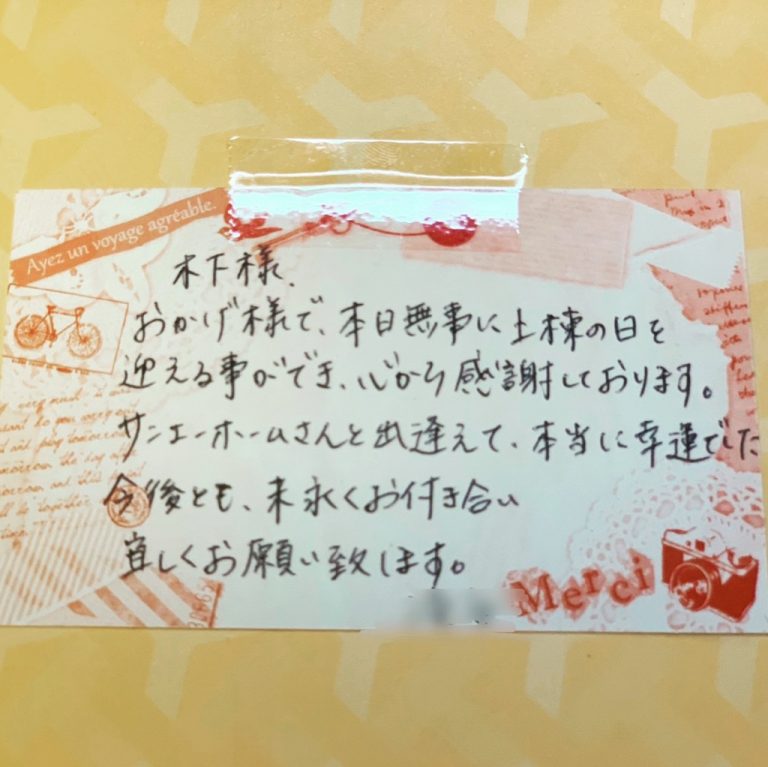 Ayez un voyage agréable.
木下様、
おかげ様で、本日無事に土棟の日を
迎える事ができ、心から感謝しております。
サンエーホームさんと出逢えて、本当に幸運でした
今後とも、末永くお付き合い
宜しくお願い致します。
Merci